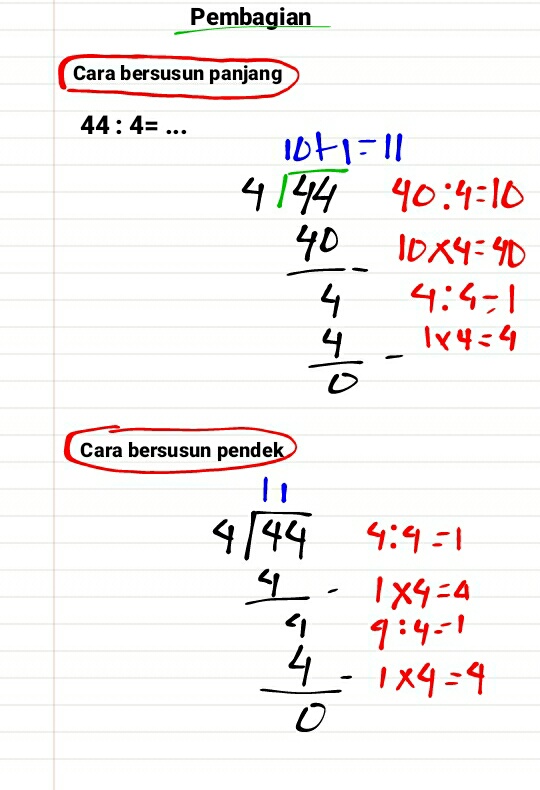 Pembagian
Cara bersusun panjang
44 : 4= ...
10+1=11
4 44 40:4=10
40 10x4=40
- 
4 4:4=1
4 1x4=4
-
0
Cara bersusun pendek
11
4 44 4:4=1
4 - 1x4=4
4 4:4=1
4 - 1x4=4
0